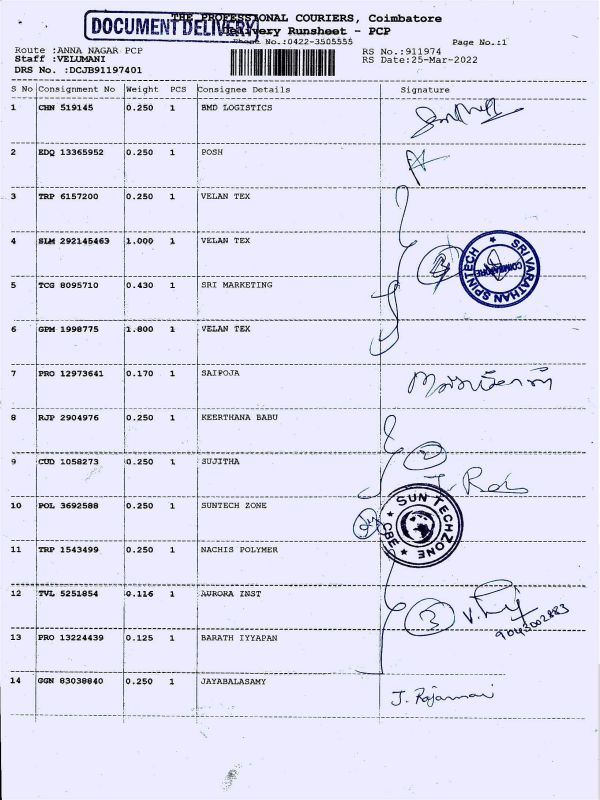 DOCUMENT DELIVERY
THE PROFESSIONAL COURIERS, Coimbatore
Delivery Runsheet - PCP
Phone No.:0422-3505555
Page No.:1
Route :ANNA NAGAR PCP
RS No.:911974
Staff :VELUMANI
RS Date:25-Mar-2022
DRS No. :DCJB91197401
S No Consignment No Weight PCS Consignee Details Signature
1 CHN 519145 0.250 1 BMD LOGISTICS
2 EDQ 13365952 0.250 1 POSH
3 TRP 6157200 0.250 1 VELAN TEX
4 SLM 292145463 1.000 1 VELAN TEX
3
SRI VARATHAN SPINTECH
COIMBATORE
5 TCG 8095710 0.430 1 SRI MARKETING
6 GPM 1998775 1.800 1 VELAN TEX
7 PRO 12973641 0.170 1 SAIPOJA
8 RJP 2904976 0.250 1 KEERTHANA BABU
2
9 CUD 1058273 0.250 1 SUJITHA
10 POL 3692588 0.250 1 SUNTECH ZONE
SUN TECHZONE
CBE
11 TRP 1543499 0.250 1 NACHIS POLYMER
12 TVL 5251854 0.116 1 AURORA INST
3
13 PRO 13224439 0.125 1 BARATH IYYAPAN
14 GGN 83038840 0.250 1 JAYABALASAMY
J. Rajamani